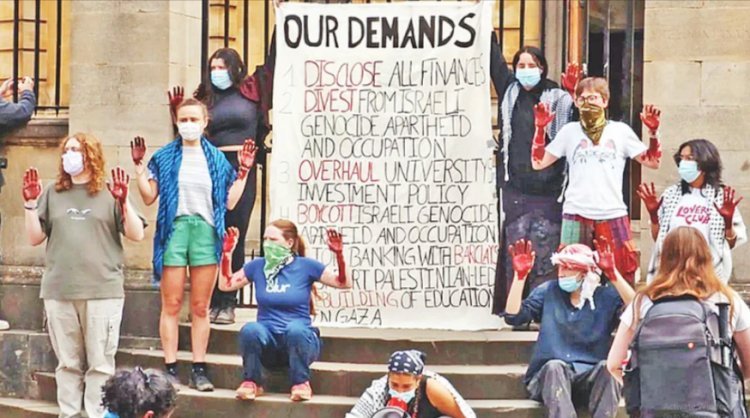 OUR DEMANDS
1 DISCLOSE ALL FINANCES
2 DIVEST FROM ISRAELI
GENOCIDE APARTHEID
AND OCCUPATION
3 OVERHAUL UNIVERSITY
INVESTMENT POLICY
4 BOYCOTT ISRAELI GENOCIDE
APARTHEID AND OCCUPATION
BANKING WITH BARCLAYS
PALESTINIAN-LED
BUILDING OF EDUCATION
IN GAZA
LOVERS
CLUB
blur